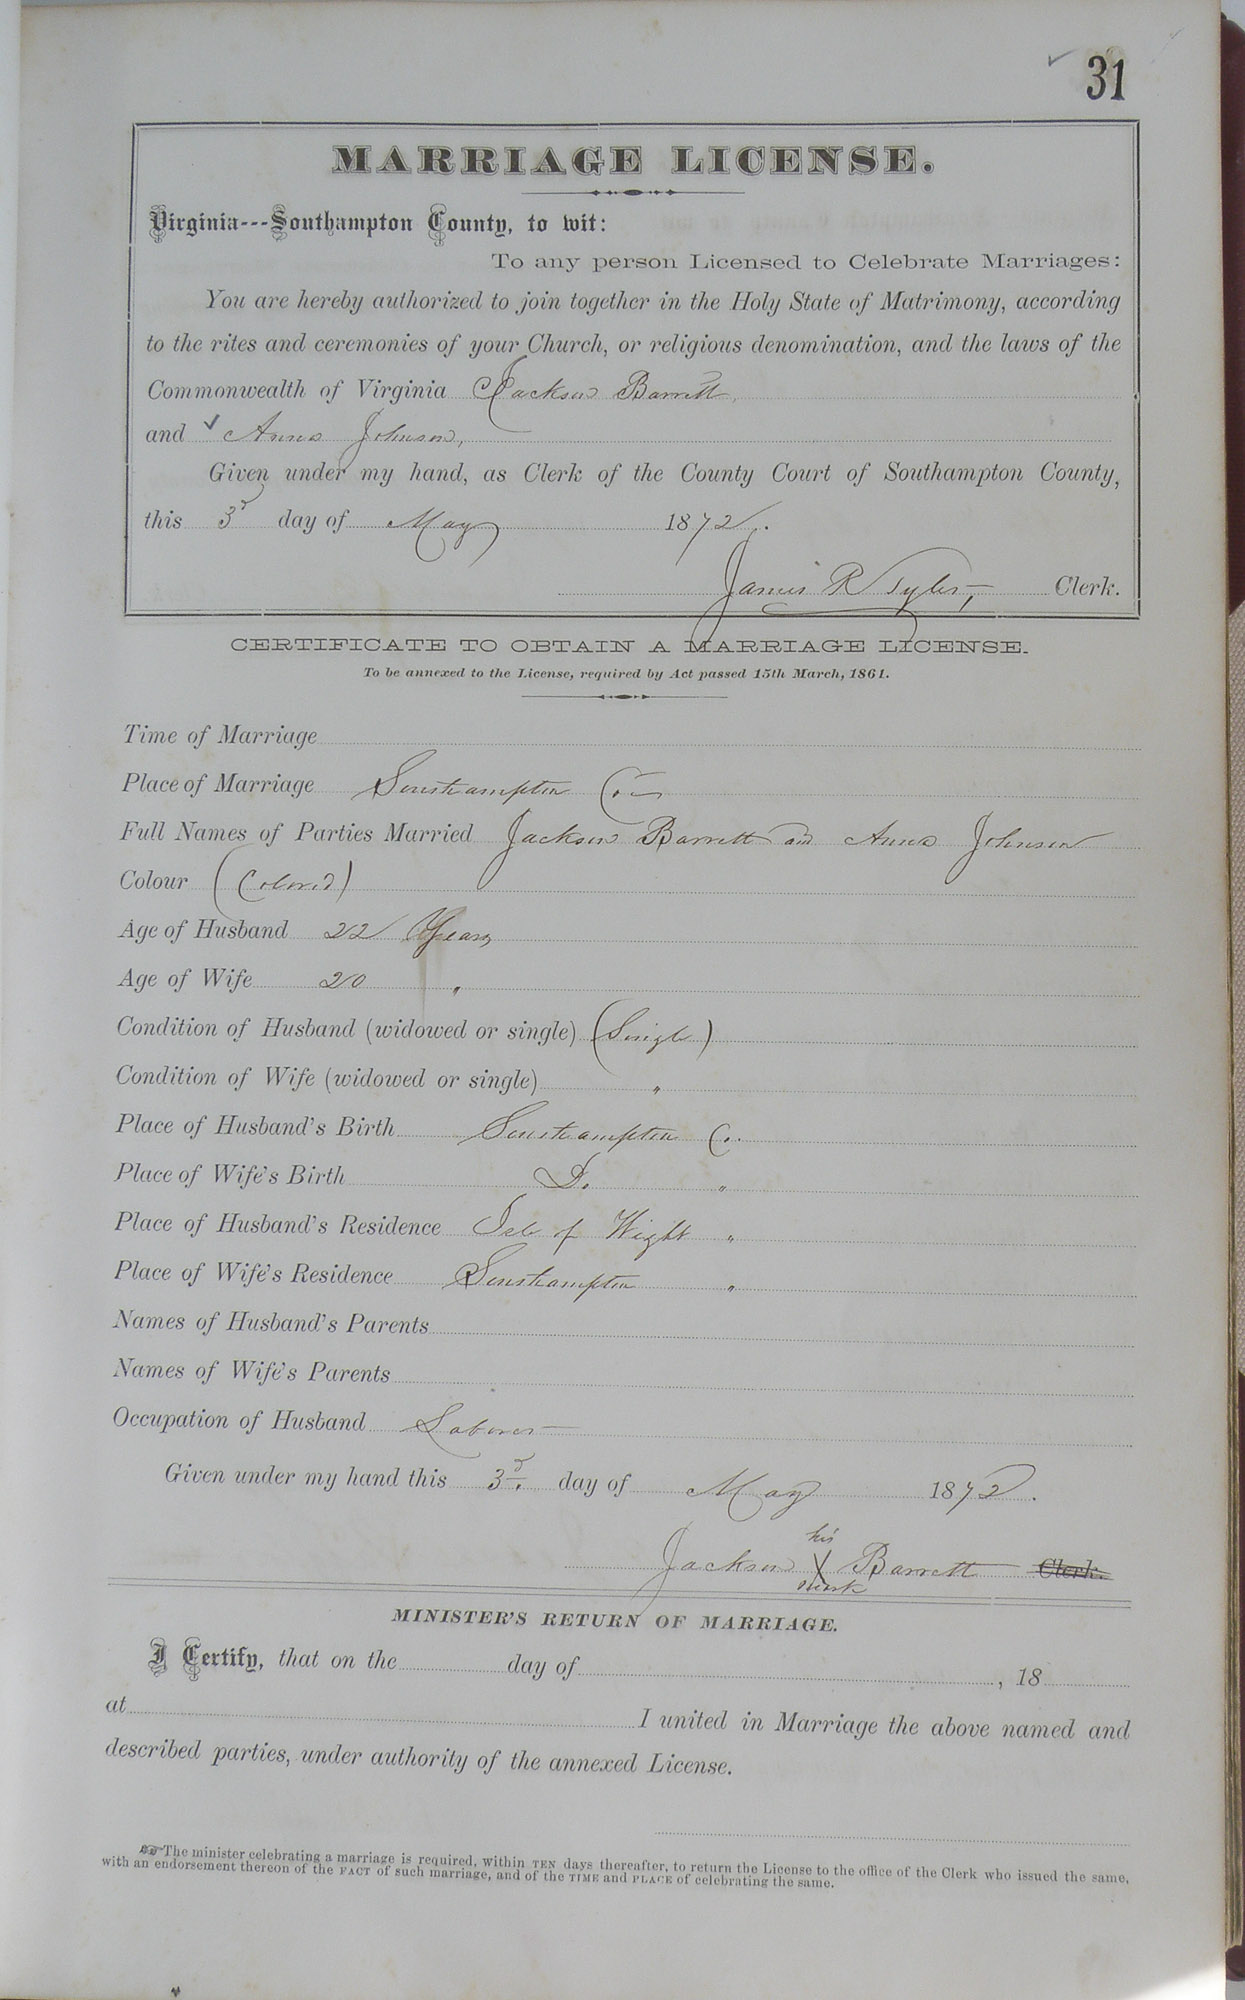 31
MARRIAGE LICENSE.
Virginia---Southampton County, to wit:
To any person Licensed to Celebrate Marriages:
You are hereby authorized to join together in the Holy State of Matrimony, according
to the rites and ceremonies of your Church, or religious denomination, and the laws of the
Commonwealth of Virginia Jackson Barrett,
and Anna Johnson,
Given under my hand, as Clerk of the County Court of Southampton County,
this 3d day of May 1872.
James R Tyler, Clerk.
CERTIFICATE TO OBTAIN A MARRIAGE LICENSE.
To be annexed to the License, required by Act passed 15th March, 1861.
Time of Marriage
Place of Marriage Southampton Co.
Full Names of Parties Married Jackson Barrett and Anna Johnson
Colour (Colored)
Age of Husband 22 Years
Age of Wife 20 "
Condition of Husband (widowed or single) (Single)
Condition of Wife (widowed or single) "
Place of Husband's Birth Southampton Co.
Place of Wife's Birth Do. "
Place of Husband's Residence Isle of Wight "
Place of Wife's Residence Southampton "
Names of Husband's Parents
Names of Wife's Parents
Occupation of Husband Laborer
Given under my hand this 3d. day of May 1872.
his
Jackson X Barrett Clerk.
mark
MINISTER'S RETURN OF MARRIAGE.
I Certify, that on the day of , 18
at I united in Marriage the above named and
described parties, under authority of the annexed License.
☞The minister celebrating a marriage is required, within TEN days thereafter, to return the License to the office of the Clerk who issued the same,
with an endorsement thereon of the FACT of such marriage, and of the TIME and PLACE of celebrating the same.